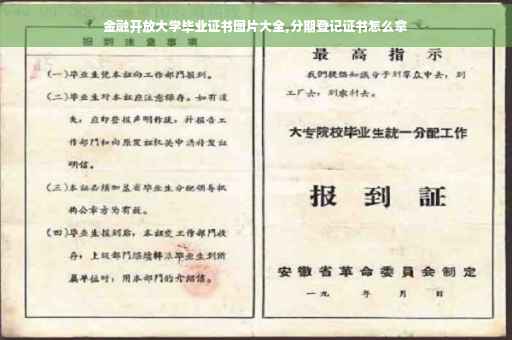 金融开放大学毕业证书图片大全,分期登记证书怎么拿
报到注意事项
(一)毕业生凭本证向工作部门报到。
(二)毕业生对本证应注意保存。如有遗
失,应即登报声明作废,并报告工
作部门和向原发证机关申请补发证
明信。
(三)本证必须加盖省毕业生分配领导机
构公章方为有效。
(四)毕业生报到后,本证交工作部门收
存;上级部门继续转派毕业生到所
属单位时,用本部门的介绍信。
最高指示
我们提倡知识分子到群众中去,到
工厂去,到农村去。
大专院校毕业生统一分配工作
报到証
安徽省革命委員会制定
一九 年 月 日